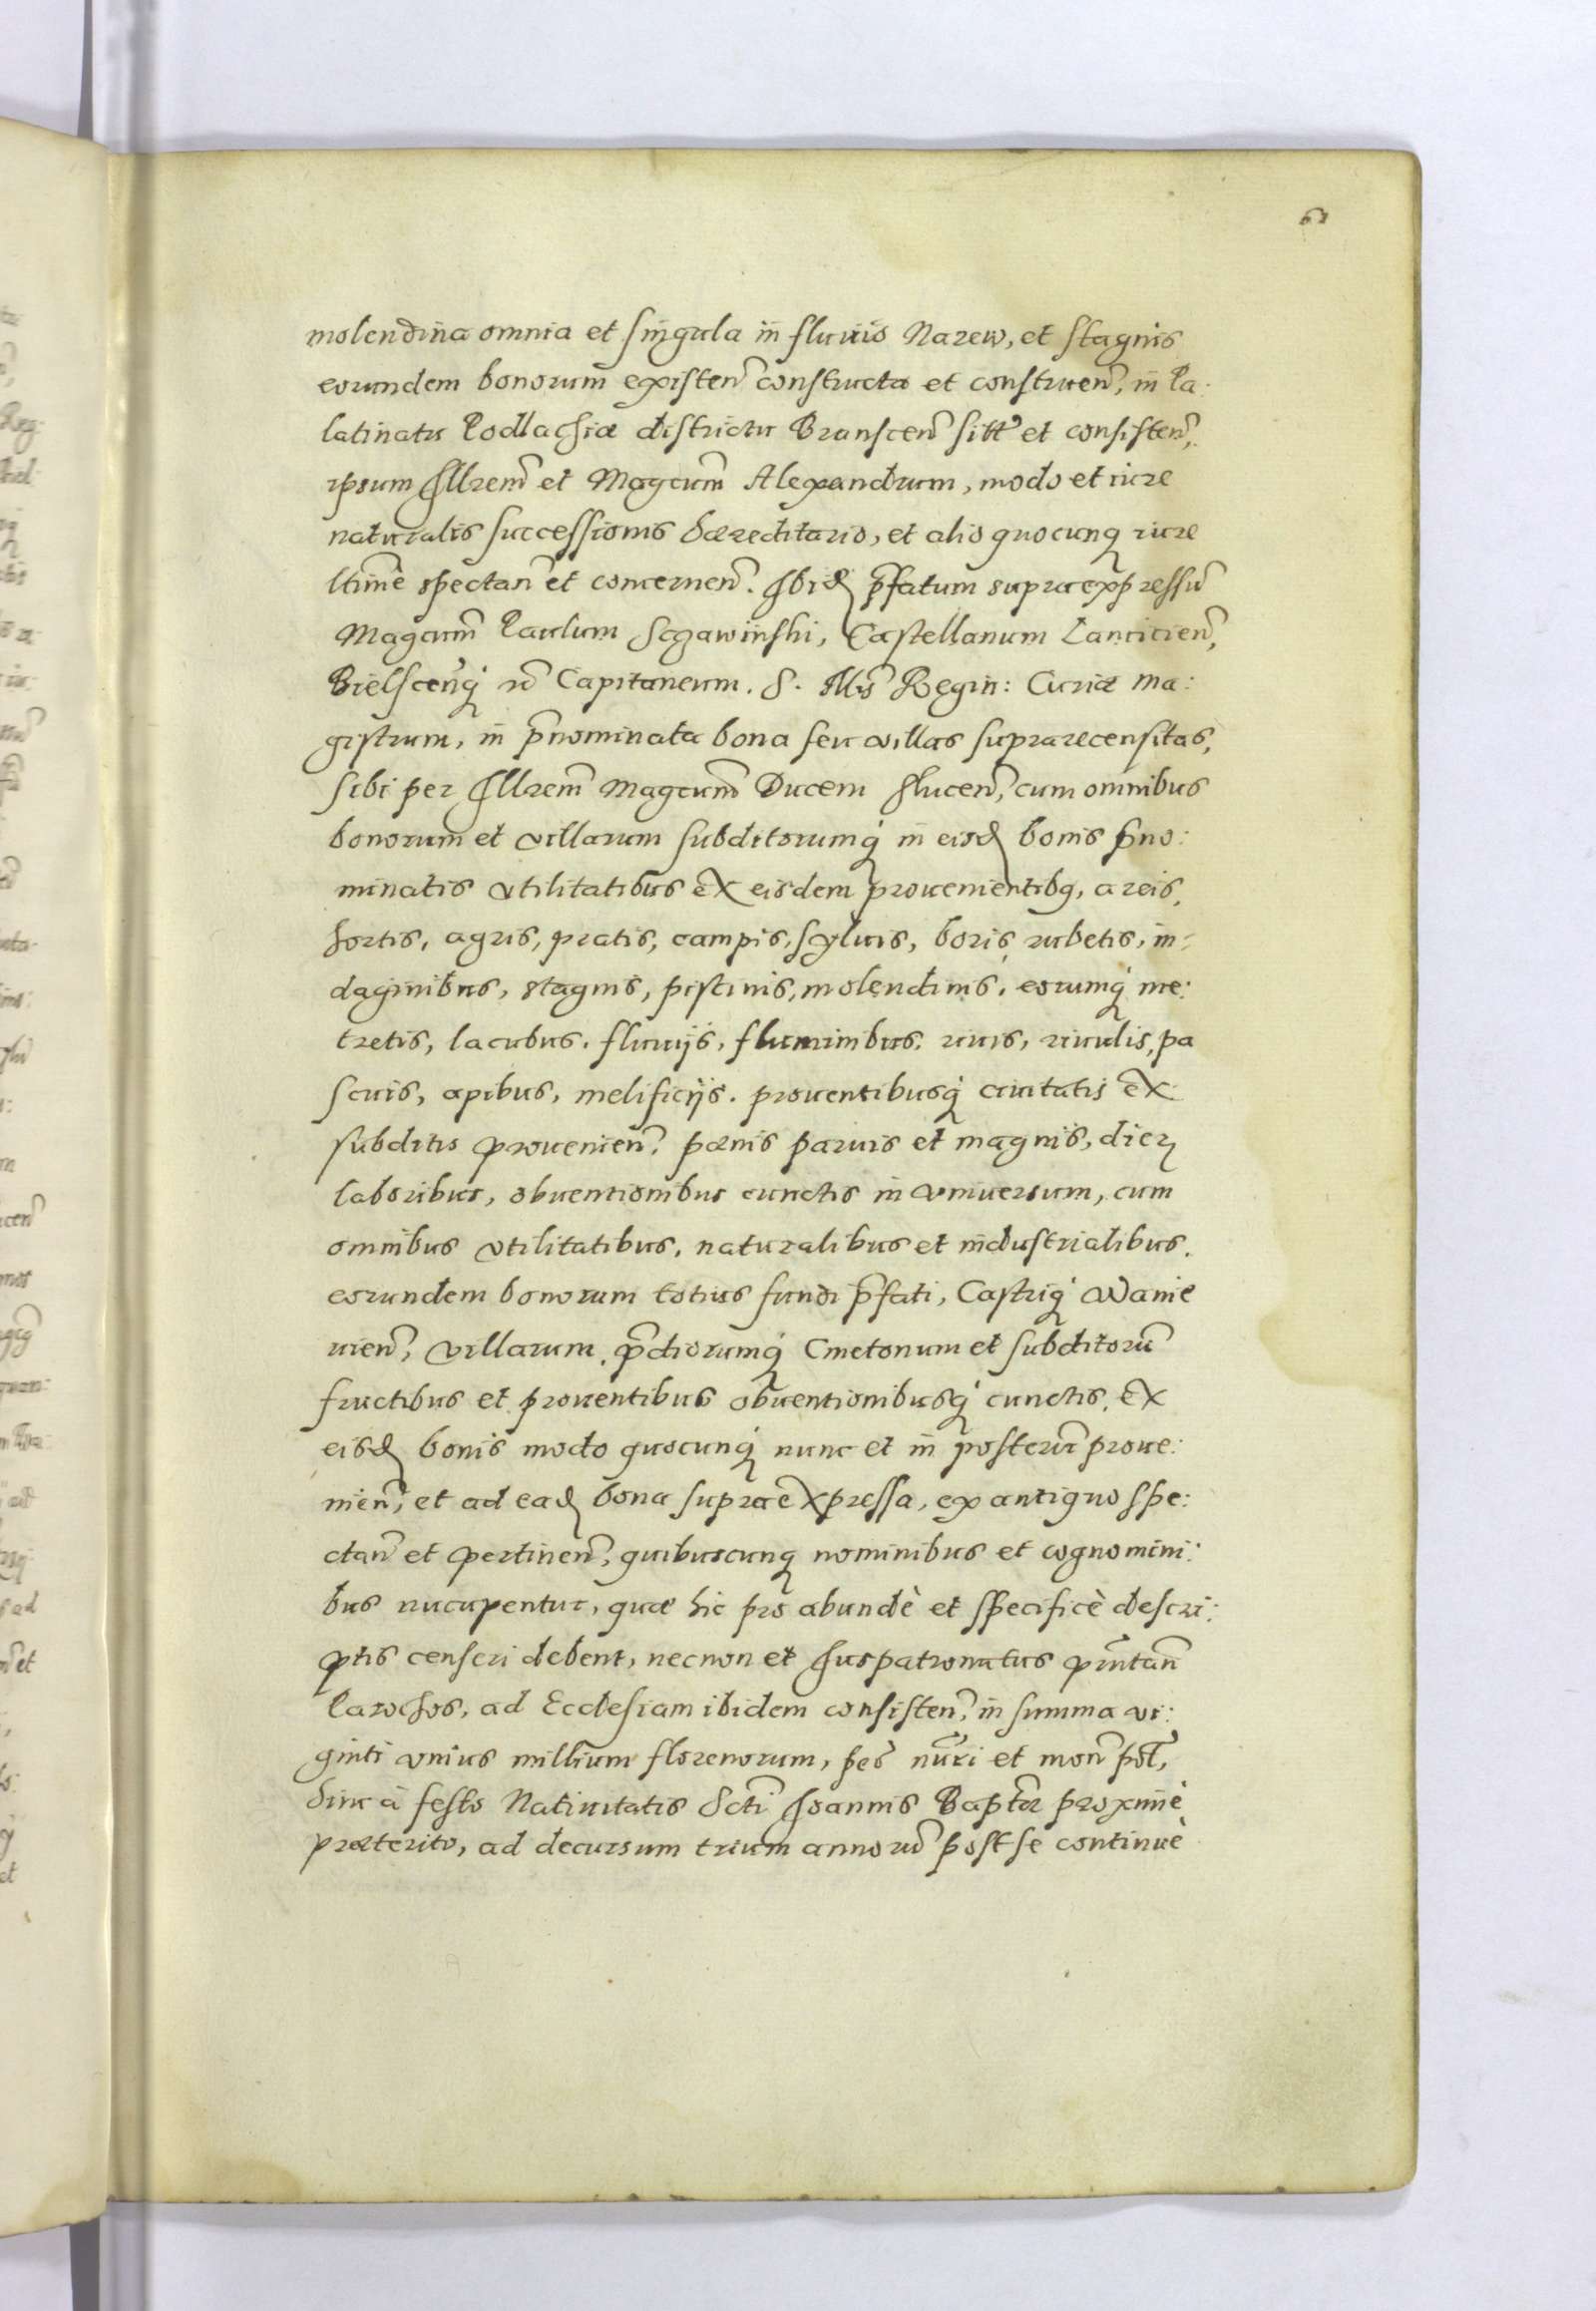 61
molendina omnia et singula in fluuio Narew, et stagnis
eorundem bonorum existen̄ constructa et construen̄, in Pa:
latinatu Podlachiæ districtu Branscen̄ sitt̄ et consisten̄,
ipsum Illrem̄ et Magcum̄ Alexandrum, modo et iure
naturalis successionis hæreditario, et alio quocunq̢ iure
ltimè spectan̄ et concernen̄. Ibid̢ p̄fatum supraexpressū
Magcum̄ Paulum Sczawinski, Castellanum Lanciciēn,
Bielscen̄q̢ ac̄ Capitaneum. S. Mtis̄ Regin: Curiæ Ma:
gistrum, in p̄nominata bona seu villas suprarecensitas,
sibi per Illrem̄ Magcum̄ Ducem Slucen̄, cum omnibus
bonorum et villarum subditorumq̢ in eisd̢ bonis p̄no:
minatis vtilitatibus ex eisdem prouenientibq, areis,
hortis, agris, pratis, campis, syluis, boris, rubetis, in:
daginibus, stagnis, piscinis, molendinis, eorumq̢ me:
tretis, lacubus, fluuijs, fluminibus, riuis, riuulis, pa
scuis, apibus, melificijs. prouentibusq̢ ciuitatis ex
subditis prouenien̄, pænis paruis et magnis, dier̢
laboribus, obuentionibus cunctis in vniuersum, cum
omnibus vtilitatibus, naturalibus et industrialibus,
eorundem bonorum totius fundi p̄fati, Castriq̢ Wanie
uien̄, villarum, p̄diorumq̢ Cmetonum et subditorū
fructibus et prouentibus obuentionibusq̢ cunctis, ex
eisd̢ bonis modo quocunq̢ nunc et in posterū proue:
nien̄, et ad ead̢ bona supraexpressa, ex antiquo spe:
ctan̄ et pertinen̄, quibuscunq̢ nominibus et cognomini:
bus nucupentur, quæ hic pro abundè et specificè descri:
ptis censeri debent, necnon et Iuspatronatus pn̄tan̄
Parochos, ad Ecclesiam ibidem consisten̄, in summa vi:
ginti vnius millium florenorum, pēs nūri et mon̄ pōl,
hinc à festo Natiuitatis Scti Ioannis Baptæ proximè
præterito, ad decursum trium annorū post se continuè